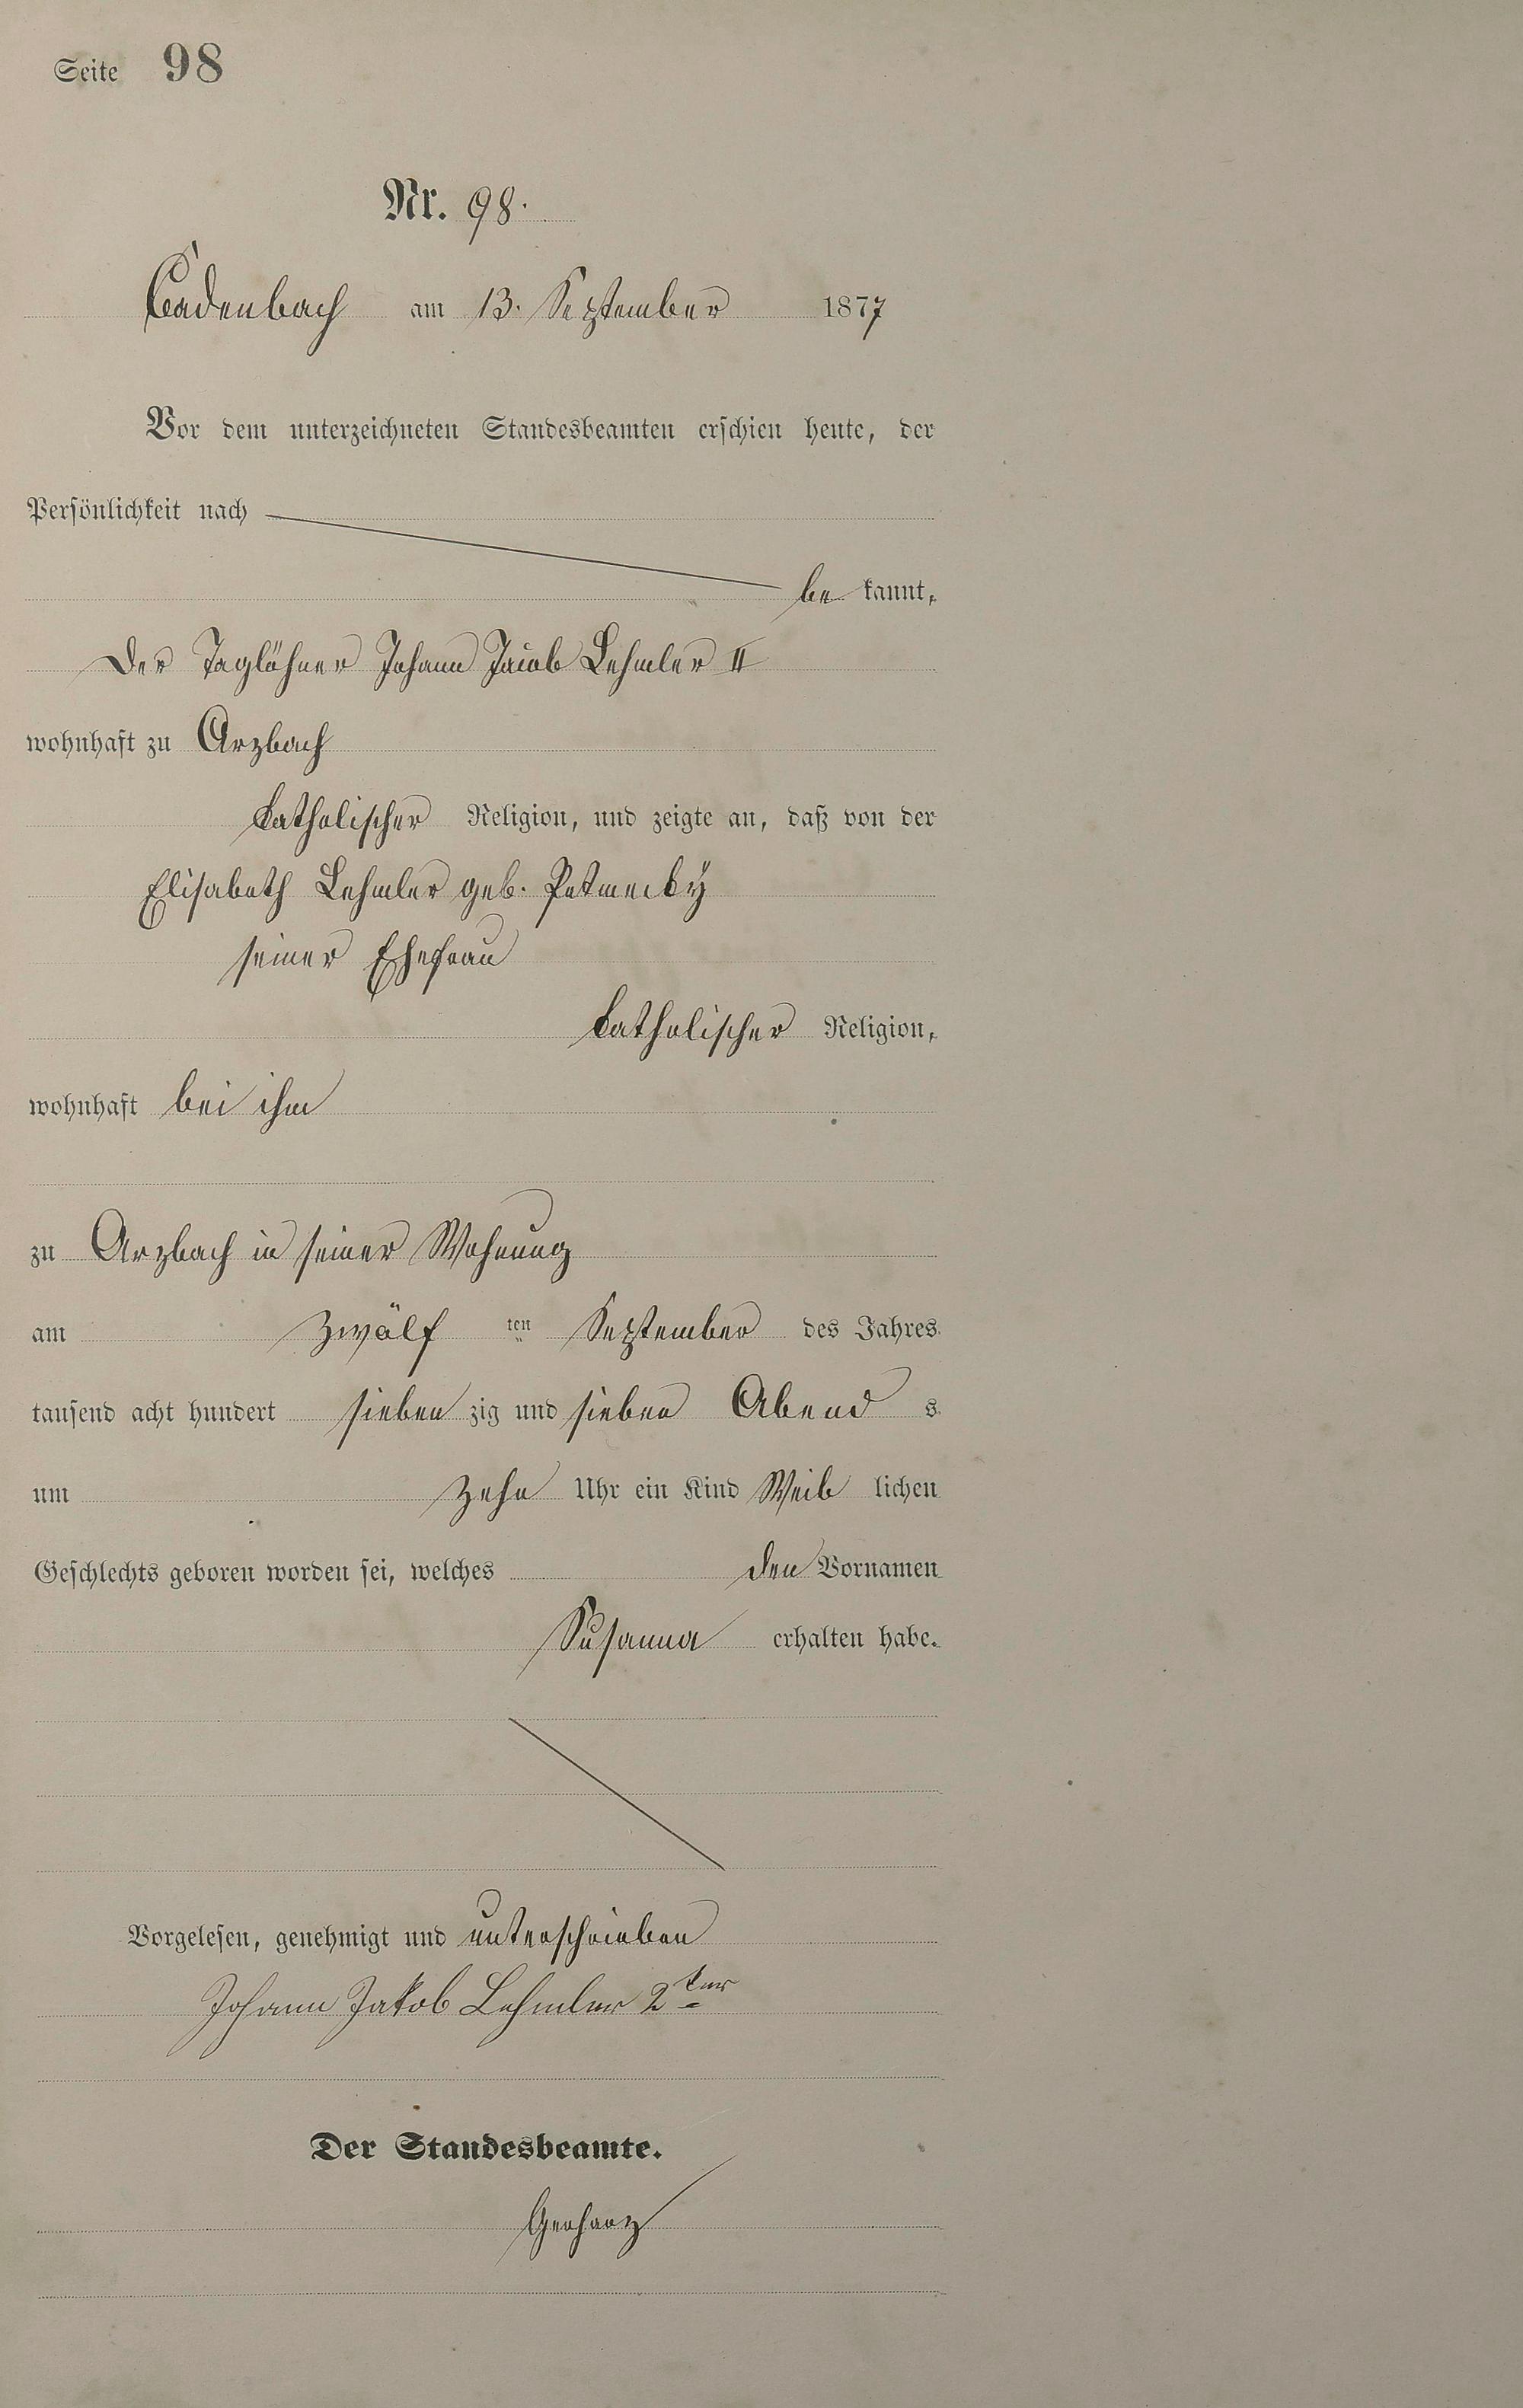 Seite 98
Nr. 98.
Cadenbach am 13. September 1877
Vor dem unterzeichneten Standesbeamten erschien heute, der
Persönlichkeit nach
be kannt,
Der Taglöhner Johann Jacob Lehmler II
wohnhaft zu Arzbach
katholischer Religion, und zeigte an, daß von der
Elisabeth Lehmler geb. Petmecky
seiner Ehefrau
katholischer Religion,
wohnhaft bei ihm
zu Arzbach in seiner Wohnung
am zwölf ten September des Jahres
tausend acht hundert sieben zig und sieben Abend s
um zehn Uhr ein Kind Weib lichen
Geschlechts geboren worden sei, welches den Vornamen
Susanna erhalten habe.
Vorgelesen, genehmigt und unterschrieben
Johann Jakob Lehmler 2ter
Der Standesbeamte.
Gerharz